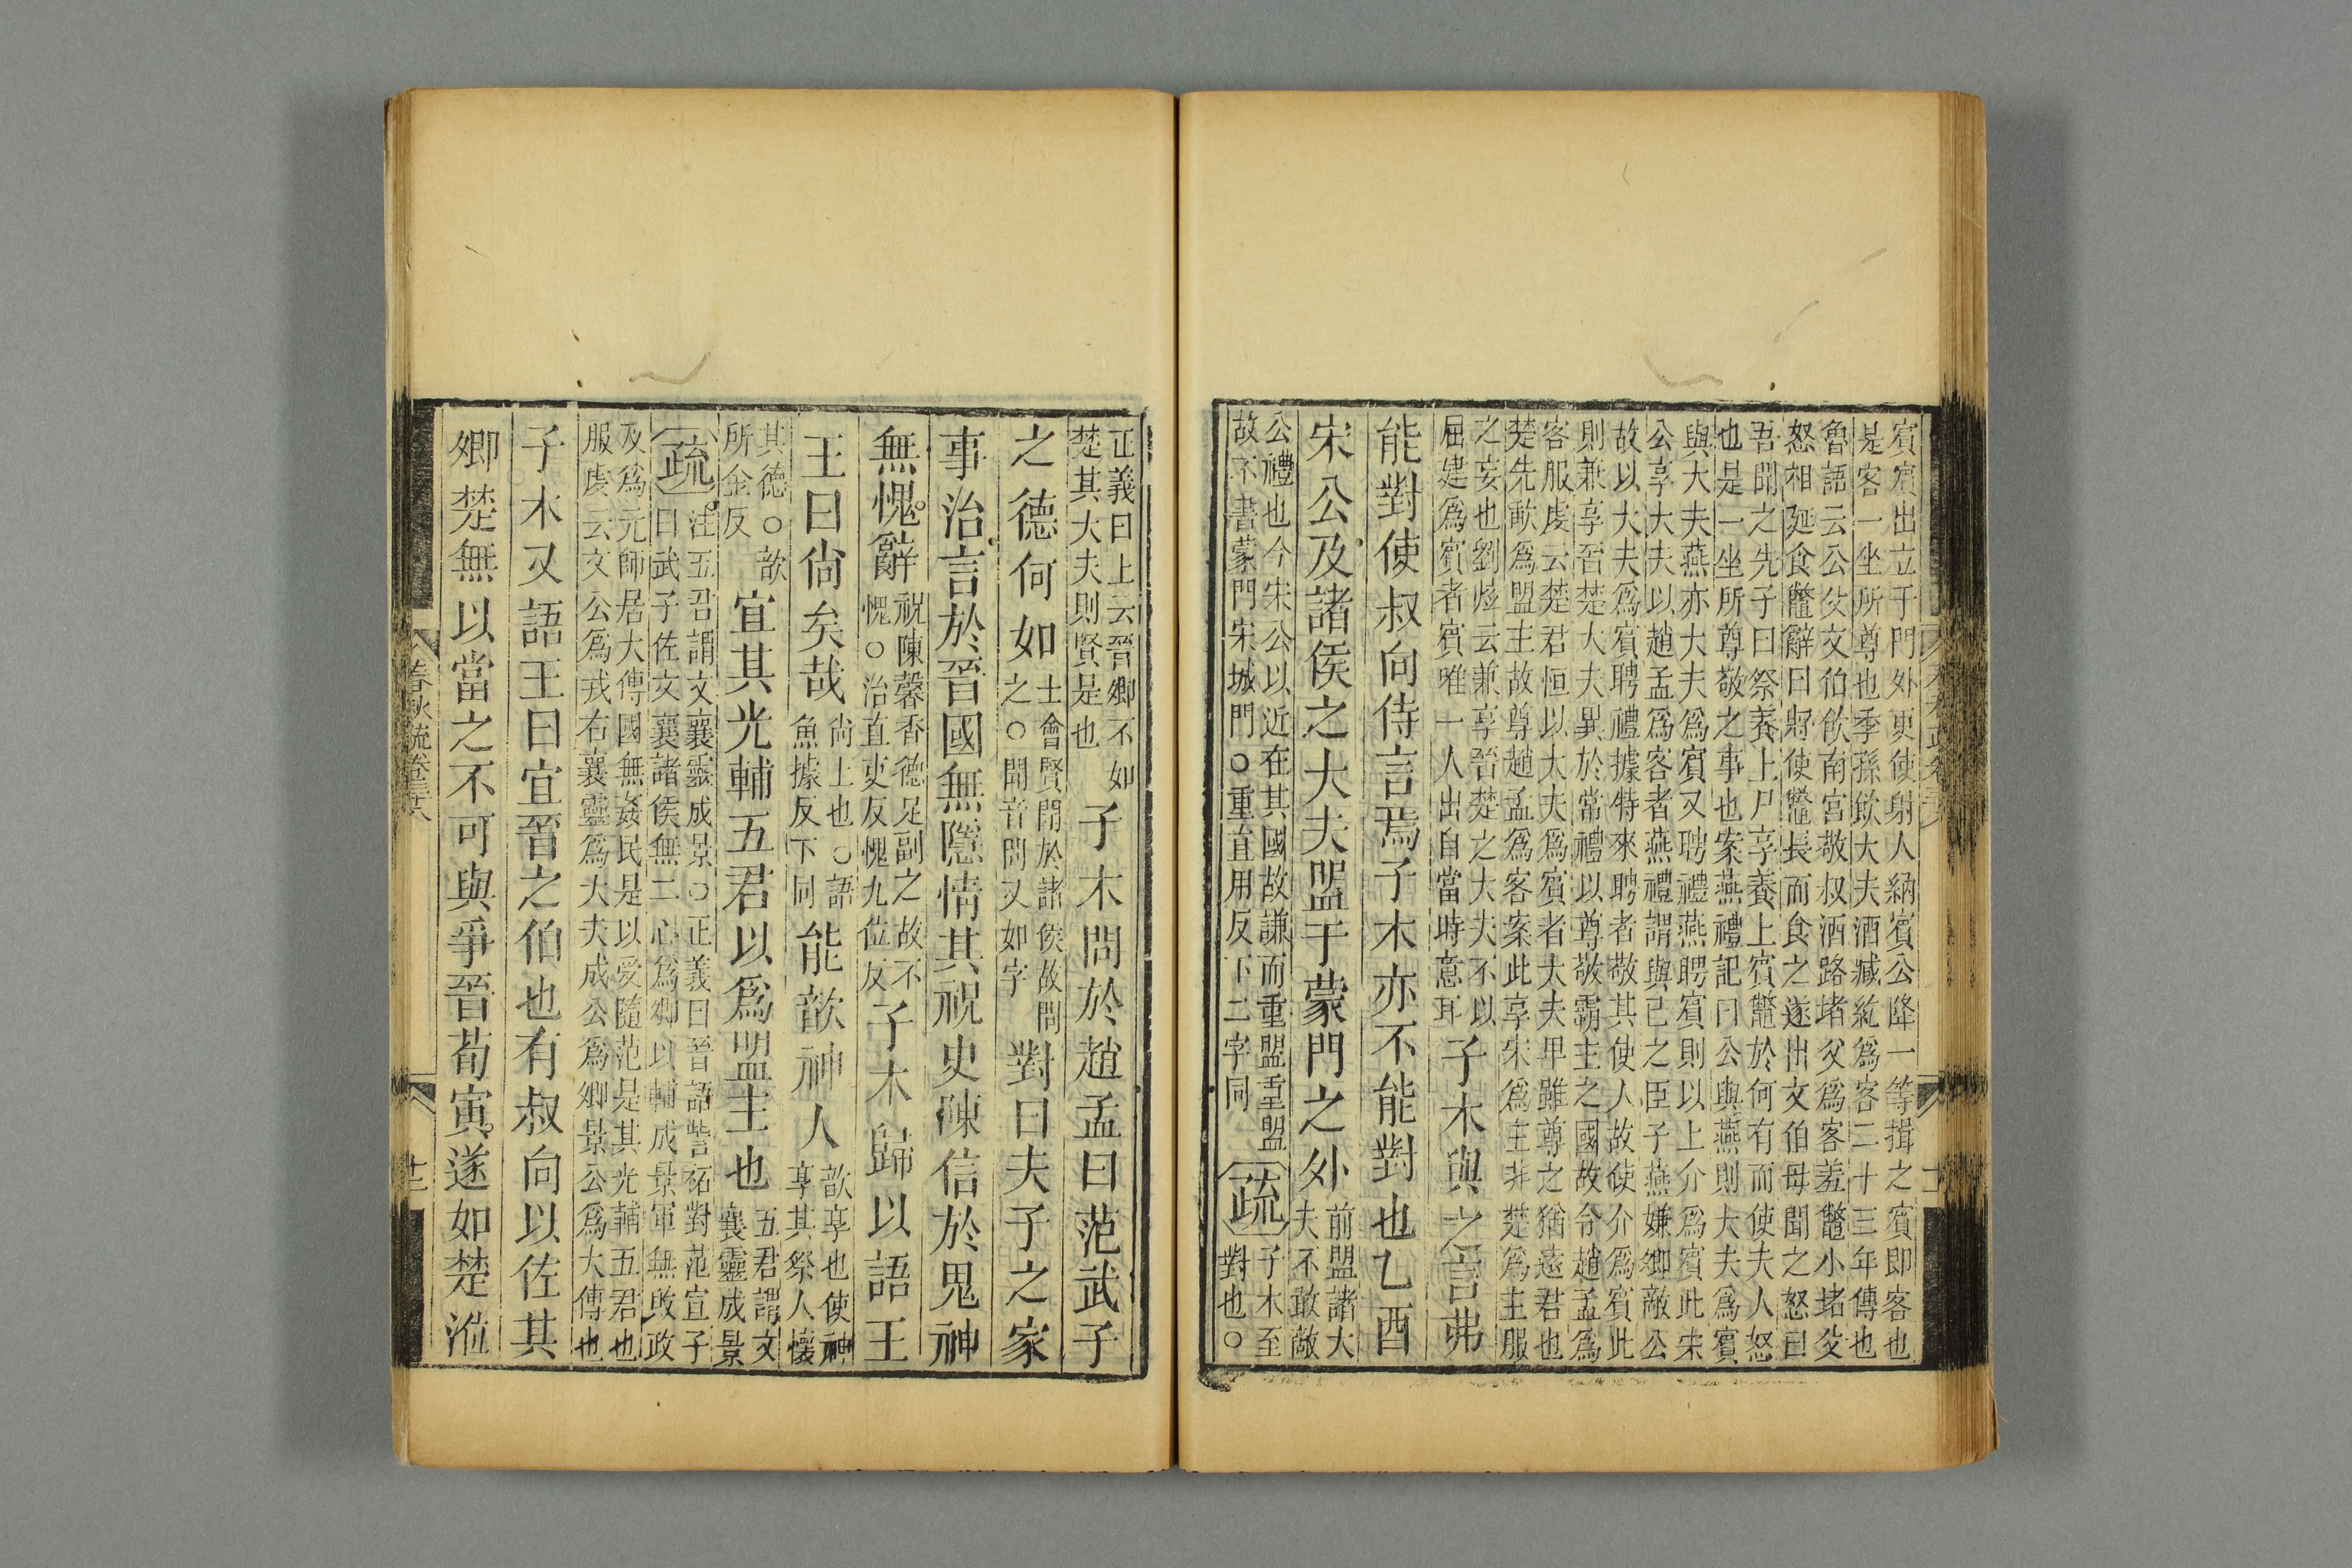 賓賓出立于門外更使射人納賓公降一等揖之賓即客也
是客一坐所尊也季孫飲大夫酒臧紇爲客二十三年傳也
魯語云公父文伯飲南宮敬叔酒路堵父爲客羞鼈小堵父
怒相延食鼈辭曰將使鼈長而食之遂出文伯母聞之怒曰
吾聞之先子曰祭養上尸享養上賓鼈於何有而使夫人怒
也是一坐所尊敬之事也案燕禮記曰公與燕則大夫爲賓
與大夫燕亦大夫爲賓又聘禮燕聘賓則以上介爲賓此宋
公享大夫以趙孟爲客者燕禮謂與己之臣子燕嫌卿敵公
故以大夫爲賓聘禮據特來聘者敬其使人故使介爲賓此
則兼享晉楚大夫異於常禮以尊敬霸主之國故令趙孟爲
客服虔云楚君恒以大夫爲賓者大夫卑雖尊之猶遠君也
楚先歃爲盟主故尊趙孟爲客案此享宋爲主非楚爲主服
之妄也劉炫云兼享晉楚之大夫不以
屈建爲賓者賓唯一人出自當時意耳
子木與之言弗
能對使叔向侍言焉子木亦不能對也乙酉
宋公及諸侯之大夫盟于蒙門之外
前盟諸大
夫不敢敵
公禮也今宋公以近在其國故謙而重盟重盟
故不書蒙門宋城門○重直用反下二字同
疏
子木至
對也○
正義曰上云晉卿不如
楚其大夫則賢是也
子木問於趙孟曰范武子
之德何如
士會賢聞於諸侯故問
之○聞音問又如字
對曰夫子之家
事治言於晉國無隱情其祝史陳信於鬼神
無愧辭
祝陳馨香德足副之故不
愧○治直吏反愧九位反
子木歸以語王
王曰尚矣哉
尚上也○語
魚據反下同
能歆神人
歆享也使神
享其祭人懷
其德○歆
所金反
宜其光輔五君以爲盟主也
五君謂文
襄靈成景
疏
注五君謂文襄靈成景○正義曰晉語訾祏對范宣子
曰武子佐文襄諸侯無二心爲卿以輔成景軍無敗政
及爲元師居大傅國無姦民是以受隨范是其光輔五君也
服虔云文公爲戎右襄靈爲大夫成公爲卿景公爲大傅也
子木又語王曰宜晉之伯也有叔向以佐其
卿楚無以當之不可與爭晉荀寅遂如楚涖
春秋疏卷三十八